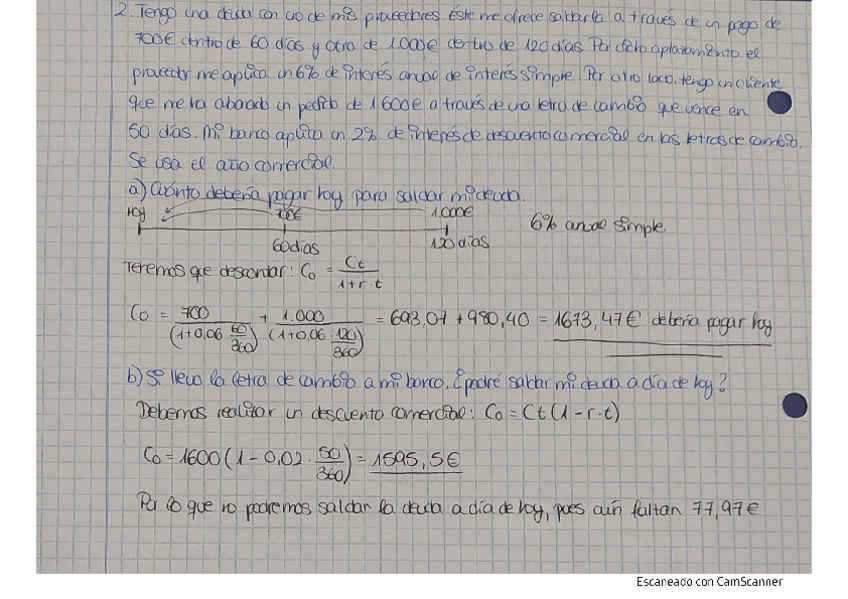 2. Tengo una deuda con uno de mis proveedores. Éste me ofrece saldarla a través de un pago de
700€ dentro de 60 días y otro de 1.000€ dentro de 120 días. Por dicho aplazamiento el
proveedor me aplica un 6% de interés anual de interés simple. Por otro lado, tengo un cliente
que me ha abonado un pedido de 1600€ a través de una letra de cambio que vence en
50 días. Mi banco aplica un 2% de interés de descuento comercial en las letras de cambio.
Se usa el año comercial.
a) Cuánto debería pagar hoy para saldar mi deuda.
hoy 700€ 1.000€ 6% anual simple.
60 días 120 días
Tenemos que descontar: Co = Ct / 1+r·t
Co = 700 / (1+0,06 60/360) + 1.000 / (1+0,06·120/360) = 693,07 + 980,40 = 1673,47€ debería pagar hoy
b) Si llevo la letra de cambio a mi banco, ¿podré saldar mi deuda a día de hoy?
Debemos realizar un descuento comercial: Co = Ct (1-r·t)
Co = 1600 (1 - 0,02 · 50/360) = 1595,5€
Por lo que no podremos saldar la deuda a día de hoy, pues aún faltan 77,97€
Escaneado con CamScanner